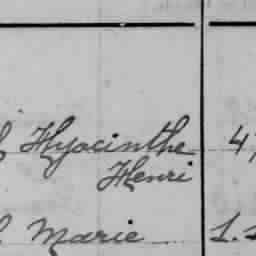 Hyacinthe 4
Henri
Marie 1.